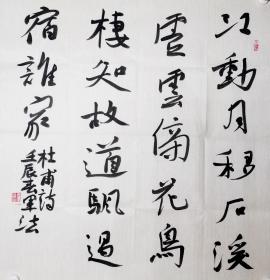 江動月移石溪
虛雲傍花鳥
棲知故道颿過
宿誰家
杜甫詩
壬辰軍法